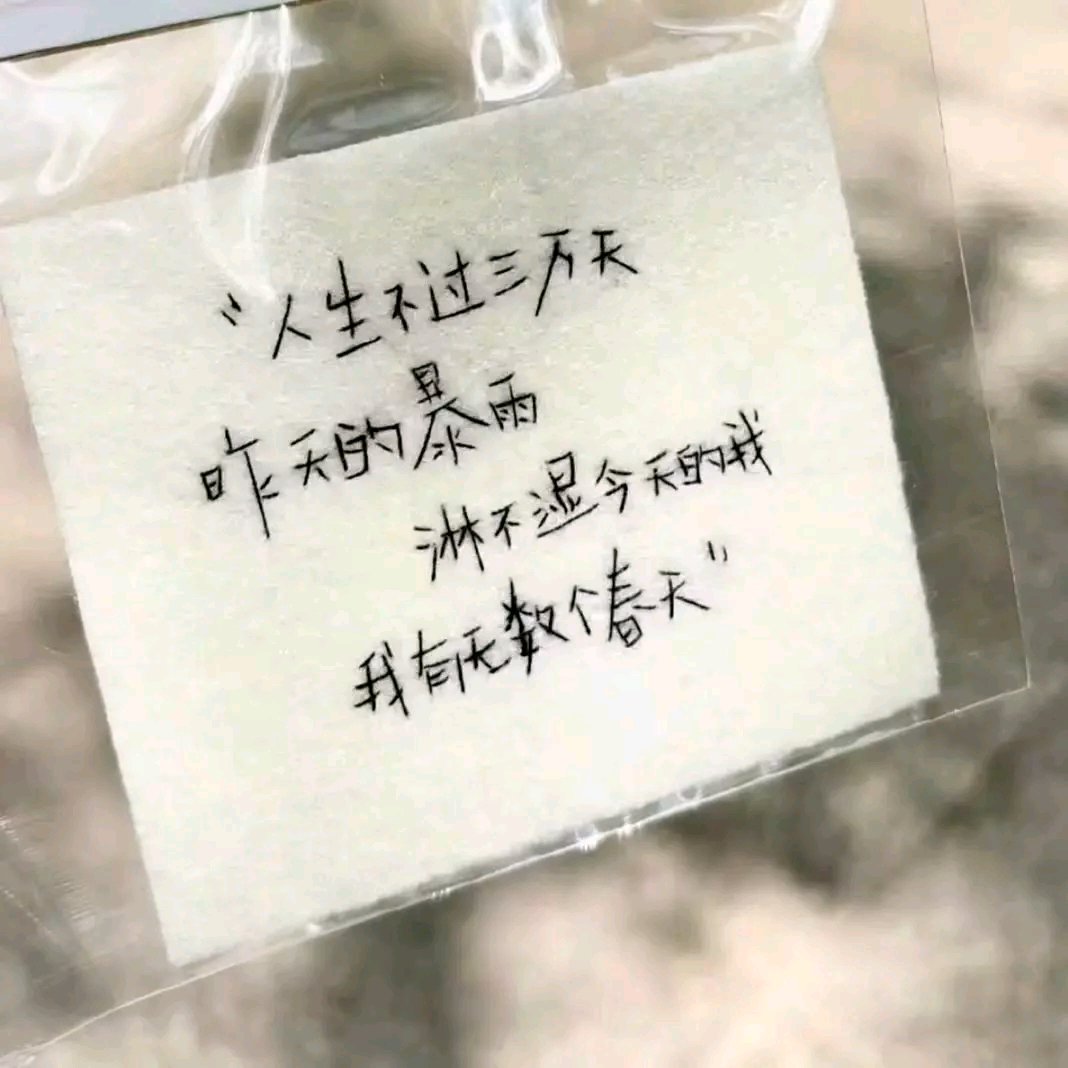 “人生不过三万天
昨天的暴雨
淋不湿今天的我
我有无数个春天”